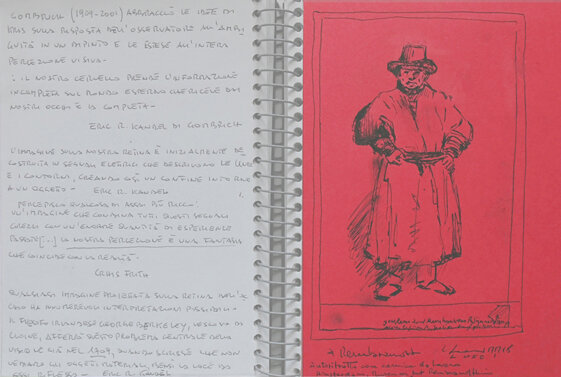 GOMBRICH (1909-2001) ABBRACCIÒ LE IDEE DI
KRIS SULLA RISPOSTA DELL'OSSERVATORE ALL'AMBI
GUITÀ IN UN DIPINTO E LE ESTESE ALL'INTERA
PERCEZIONE VISIVA.
: IL NOSTRO CERVELLO PRENDE L'INFORMAZIONE
INCOMPLETA SUL MONDO ESTERNO CHE RICEVE DAI
NOSTRI OCCHI E LA COMPLETA.
ERIC R. KANDEL DI GOMBRICH
L'IMMAGINE SULLA NOSTRA RETINA È INIZIALMENTE DE
COSTRUITA IN SEGNALI ELETTRICI CHE DESCRIVONO LE LINEE
E I CONTORNI, CREANDO COSÌ UN CONFINE INTORNO
A UN OGGETTO - ERIC R. KANDEL
PERCEPIAMO QUALCOSA DI ASSAI PIÙ RICCO:
UN'IMMAGINE CHE COMBINA TUTTI QUESTI SEGNALI
GREZZI CON UN'ENORME QUANTITÀ DI ESPERIENZE
PASSATE [...] LA NOSTRA PERCEZIONE È UNA FANTASIA
CHE COINCIDE CON LA REALTÀ.
CHRIS FRITH
QUALSIASI IMMAGINE PROIETTATA SULLA RETINA DELL'OC
CHIO HA INNUMEREVOLI INTERPRETAZIONI POSSIBILI.
IL FILOSOFO IRLANDESE GEORGE BERKELEY, VESCOVO DI
CLOYNE, AFFERRÒ QUESTO PROBLEMA CENTRALE DELLA
VISIONE GIÀ NEL 1709, QUANDO SCRISSE CHE NON
VEDIAMO GLI OGGETTI MATERIALI, BENSÌ LA LUCE DA
ESSI RIFLESSA - ERIC R. KANDEL
A Rembrandt
Autoritratto con camice da lavoro
Amsterdam, Museum het Rembrandthuis